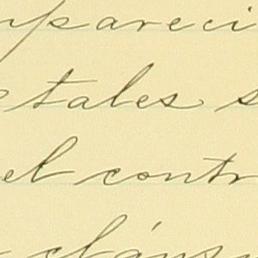 mpareci
tales s
el contr
cláus